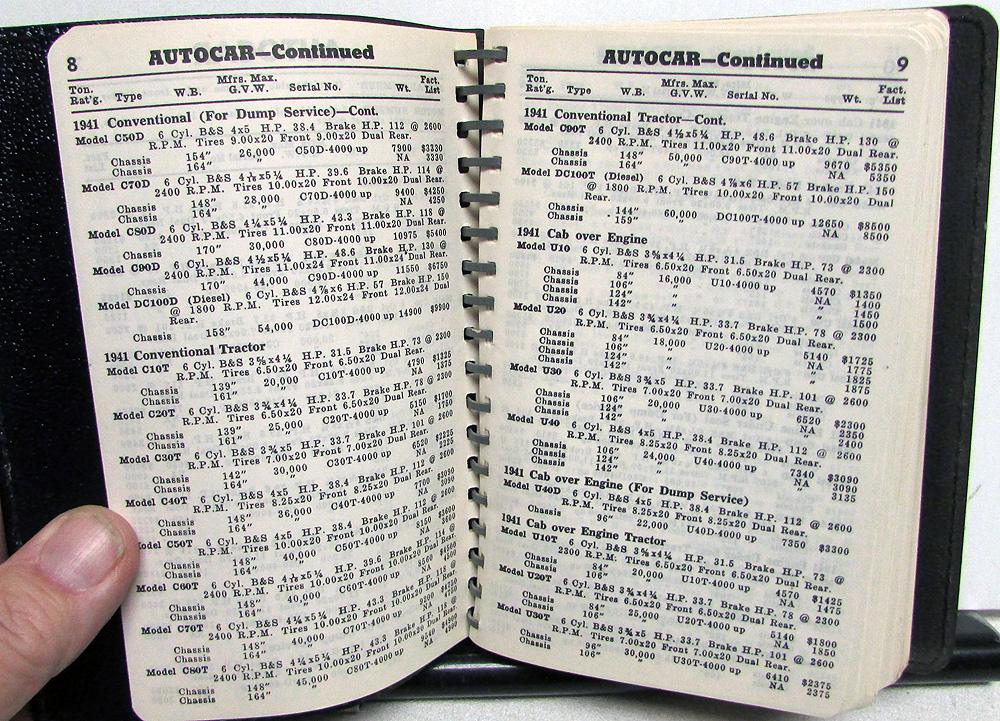 8 AUTOCAR—Continued
Ton. Mfrs. Max. Fact.
Rat'g. Type W.B. G.V.W. Serial No. Wt. List
1941 Conventional (For Dump Service)—Cont.
Model C50D 6 Cyl. B&S 4x5 H.P. 38.4 Brake H.P. 112 @ 2600
R.P.M. Tires 9.00x20 Front 9.00x20 Dual Rear.
Chassis 154" 26,000 C50D-4000 up 7900 $3330
Chassis 164" " NA 3330
Model C70D 6 Cyl. B&S 4⅛x5¼ H.P. 39.6 Brake H.P. 114 @
2400 R.P.M. Tires 10.00x20 Front 10.00x20 Dual Rear.
Chassis 148" 28,000 C70D-4000 up 9400 $4250
Chassis 164" " NA 4250
Model C80D 6 Cyl. B&S 4¼x5¼ H.P. 43.3 Brake H.P. 118 @
2400 R.P.M. Tires 11.00x20 Front 11.00x20 Dual Rear.
Chassis 170" 30,000 C80D-4000 up 10975 $5400
Model C90D 6 Cyl. B&S 4½x5¼ H.P. 48.6 Brake H.P. 130 @
2400 R.P.M. Tires 11.00x24 Front 11.00x24 Dual Rear.
Chassis 170" 44,000 C90D-4000 up 11550 $6750
Model DC100D (Diesel) 6 Cyl. B&S 4⅞x6 H.P. 57 Brake H.P. 150
@ 1800 R.P.M. Tires 12.00x24 Front 12.00x24 Dual
Rear.
Chassis 158" 54,000 DC100D-4000 up 14900 $9900
1941 Conventional Tractor
Model C10T 6 Cyl. B&S 3⅝x4¼ H.P. 31.5 Brake H.P. 73 @ 2300
R.P.M. Tires 6.50x20 Front 6.50x20 Dual Rear.
Chassis 139" 20,000 C10T-4000 up 4790 $1325
Chassis 161" " NA 1375
Model C20T 6 Cyl. B&S 3¾x4¼ H.P. 33.7 Brake H.P. 78 @ 2300
R.P.M. Tires 6.50x20 Front 6.50x20 Dual Rear.
Chassis 139" 25,000 C20T-4000 up 5150 $1700
Chassis 161" " NA 1750
Model C30T 6 Cyl. B&S 3¾x5 H.P. 33.7 Brake H.P. 101 @
R.P.M. Tires 7.00x20 Front 7.00x20 Dual Rear.
Chassis 142" 30,000 C30T-4000 up 6520 $2225
Chassis 164" " NA
Model C40T 6 Cyl. B&S 4x5 H.P. 38.4 Brake H.P. 112 @ 2600
R.P.M. Tires 8.25x20 Front 8.25x20 Dual Rear.
Chassis 148" 36,000 C40T-4000 up 7700 $3090
Chassis 164" " NA 3090
Model C50T 6 Cyl. B&S 4x5 H.P. 38.4 Brake H.P. 112 @ 2600
R.P.M. Tires 10.00x20 Front 10.00x20 Dual Rear.
Chassis 148" 40,000 C50T-4000 up 8150
Chassis 164" " NA
Model C60T 6 Cyl. B&S 4⅛x5¼ H.P. 39.6 Brake H.P. 114 @
2400 R.P.M. Tires 10.00x20 Front 10.00x20 Dual Rear.
Chassis 148" 40,000 C60T-4000 up
Chassis 164" " NA
Model C70T 6 Cyl. B&S 4¼x5¼ H.P. 43.3 Brake H.P. 118 @
2400 R.P.M. Tires 10.00x20 Front 10.00x20 Dual Rear.
Chassis 148" 40,000 C70T-4000 up
Chassis 164" " NA
Model C80T 6 Cyl. B&S 4¼x5¼ H.P. 43.3 Brake H.P. 118 @
2400 R.P.M. Tires 10.00x20 Front 10.00x20 Dual Rear.
Chassis 148" 45,000 C80T-4000 up
Chassis 164" " NA
AUTOCAR—Continued 9
Ton. Mfrs. Max. Fact.
Rat'g. Type W.B. G.V.W. Serial No. Wt. List
1941 Conventional Tractor—Cont.
Model C90T 6 Cyl. B&S 4½x5¼ H.P. 48.6 Brake H.P. 130 @
2400 R.P.M. Tires 11.00x20 Front 11.00x20 Dual Rear.
Chassis 148" 50,000 C90T-4000 up 9670 $5350
Chassis 164" " NA 5350
Model DC100T (Diesel) 6 Cyl. B&S 4⅞x6 H.P. 57 Brake H.P. 150
@ 1800 R.P.M. Tires 10.00x20 Front 10.00x20 Dual
Rear.
Chassis 144" 60,000 DC100T-4000 up 12650 $8500
Chassis 159" " NA 8500
1941 Cab over Engine
Model U10 6 Cyl. B&S 3⅝x4¼ H.P. 31.5 Brake H.P. 73 @ 2300
R.P.M. Tires 6.50x20 Front 6.50x20 Dual Rear.
Chassis 84" 16,000 U10-4000 up 4570 $1350
Chassis 106" " NA 1400
Chassis 124" " " 1450
Chassis 142" " " 1500
Model U20 6 Cyl. B&S 3¾x4¼ H.P. 33.7 Brake H.P. 78 @ 2300
R.P.M. Tires 6.50x20 Front 6.50x20 Dual Rear.
Chassis 84" 18,000 U20-4000 up 5140 $1725
Chassis 106" " NA 1775
Chassis 124" " " 1825
Chassis 142" " " 1875
Model U30 6 Cyl. B&S 3¾x5 H.P. 33.7 Brake H.P. 101 @ 2600
R.P.M. Tires 7.00x20 Front 7.00x20 Dual Rear.
Chassis 106" 20,000 U30-4000 up 6520 $2300
Chassis 124" " NA 2350
Chassis 142" " " 2400
Model U40 6 Cyl. B&S 4x5 H.P. 38.4 Brake H.P. 112 @ 2600
R.P.M. Tires 8.25x20 Front 8.25x20 Dual Rear.
Chassis 106" 24,000 U40-4000 up 7340 $3090
Chassis 124" " NA 3090
Chassis 142" " " 3135
1941 Cab over Engine (For Dump Service)
Model U40D 6 Cyl. B&S 4x5 H.P. 38.4 Brake H.P. 112 @ 2600
R.P.M. Tires 8.25x20 Front 8.25x20 Dual Rear.
Chassis 96" 22,000 U40D-4000 up 7350 $3300
1941 Cab over Engine Tractor
Model U10T 6 Cyl. B&S 3⅝x4¼ H.P. 31.5 Brake H.P. 73 @
2300 R.P.M. Tires 6.50x20 Front 6.50x20 Dual Rear.
Chassis 84" 20,000 U10T-4000 up 4570 $1425
Chassis 106" " NA 1475
Model U20T 6 Cyl. B&S 3¾x4¼ H.P. 33.7 Brake H.P. 78 @ 2300
R.P.M. Tires 6.50x20 Front 6.50x20 Dual Rear.
Chassis 84" 25,000 U20T-4000 up 5140 $1800
Chassis 106" " NA 1850
Model U30T 6 Cyl. B&S 3¾x5 H.P. 33.7 Brake H.P. 101 @ 2600
R.P.M. Tires 7.00x20 Front 7.00x20 Dual Rear.
Chassis 96" 30,000 U30T-4000 up 6410 $2375
Chassis 106" " NA 2375